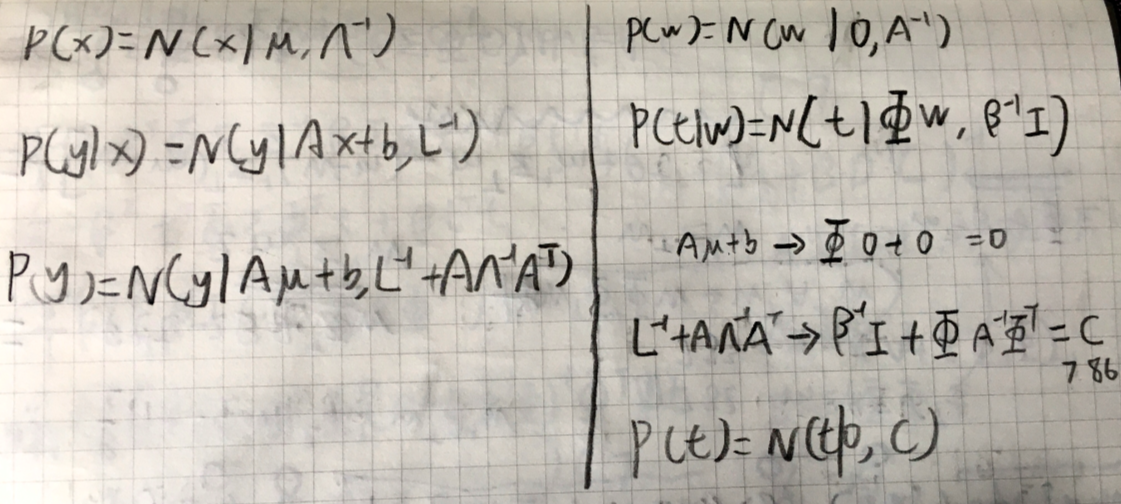 P(x)=N(x|μ,Λ⁻¹)
P(y|x)=N(y|Ax+b,L⁻¹)
P(y)=N(y|Aμ+b,L⁻¹+AΛ⁻¹Aᵀ)
P(w)=N(w|0,A⁻¹)
P(t|w)=N(t|Φw,β⁻¹I)
Aμ+b→Φ0+0=0
L⁻¹+AΛ⁻¹Aᵀ→β⁻¹I+ΦA⁻¹Φᵀ=C
7 86
P(t)=N(t|0,C)